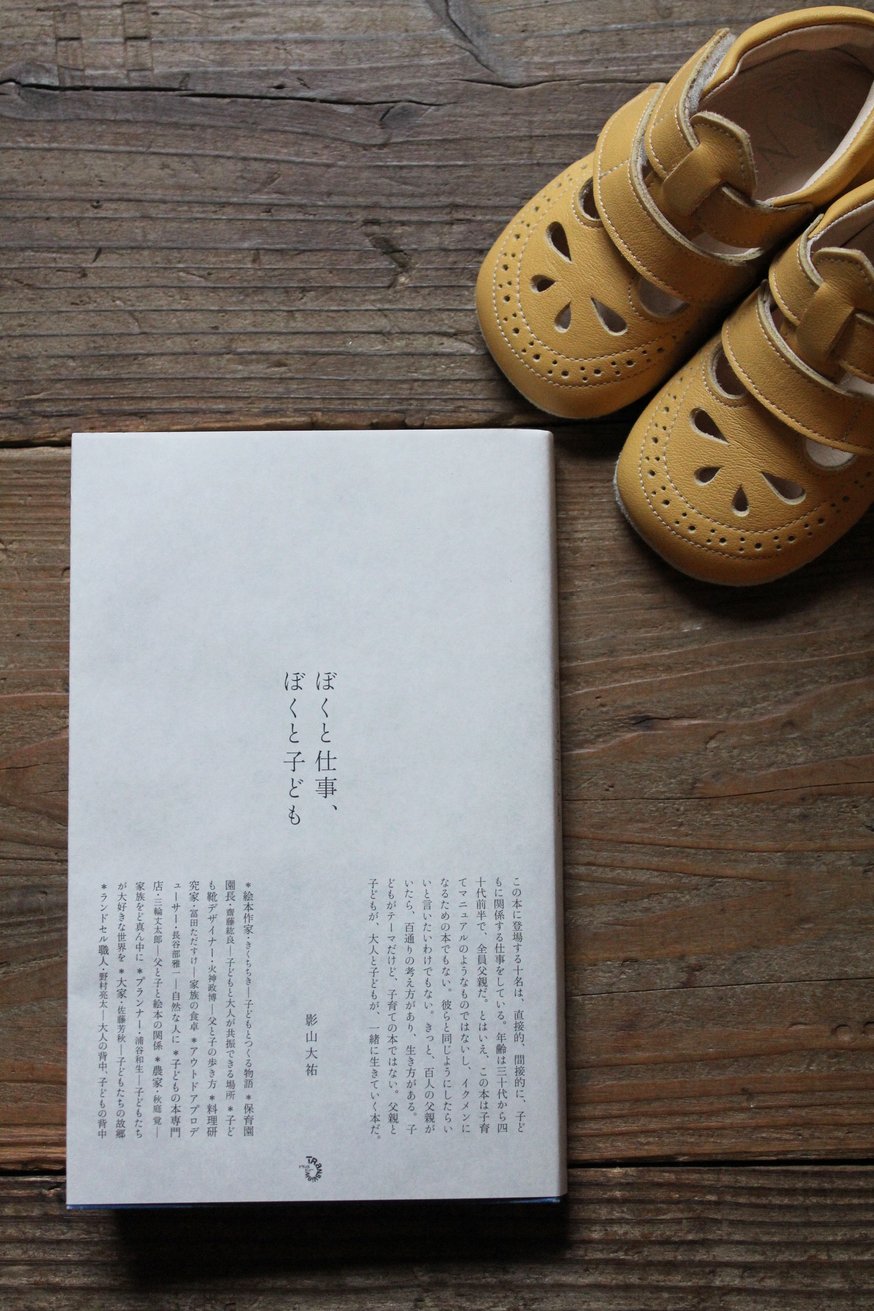 ぼくと仕事、
ぼくと子ども
この本に登場する十名は、直接的、間接的に、子ど
もに関係する仕事をしている。年齢は三十代から四
十代前半で、全員父親だ。とはいえ、この本は子育
てマニュアルのようなものではないし、イクメンに
なるための本でもない。彼らと同じようにしたらい
いと言いたいわけでもない。きっと、百人の父親が
いたら、百通りの考え方があり、生き方がある。子
どもがテーマだけど、子育ての本ではない。父親と
子どもが、大人と子どもが、一緒に生きていく本だ。
影山大祐
＊絵本作家・きくちちき―子どもとつくる物語 ＊保育園
園長・齋藤紘良―子どもと大人が共振できる場所 ＊子ど
も靴デザイナー・火神政博―父と子の歩き方 ＊料理研
究家・冨田ただすけ―家族の食卓 ＊アウトドアプロデ
ューサー・長谷部雅一―自然な人に ＊子どもの本専門
店・三輪丈太郎―父と子と絵本の関係 ＊農家・秋庭覚―
家族をど真ん中に ＊プランナー・浦谷和生―子どもたち
が大好きな世界を ＊大家・佐藤芳秋―子どもたちの故郷
＊ランドセル職人・野村亮太―大人の背中、子どもの背中